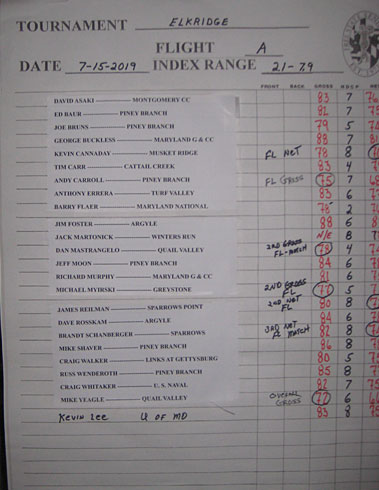 TOURNAMENT ELKRIDGE
FLIGHT A
DATE 7-15-2019 INDEX RANGE 2.1-7.9
FRONT BACK GROSS HDCP
DAVID ASAKI MONTGOMERY CC 83 7
ED BAUR PINEY BRANCH 82 7
JOE BRUNS PINEY BRANCH 79 5
GEORGE BUCKLESS MARYLAND G & CC 88 7
KEVIN CANNADAY MUSKET RIDGE FL NET 78 8
TIM CARR CATTAIL CREEK 83 4
ANDY CARROLL PINEY BRANCH FL GROSS 75 7
ANTHONY ERRERA TURF VALLEY 83 6
BARRY FLAER MARYLAND NATIONAL 78 2
JIM FOSTER ARGYLE 88 6
JACK MARTONICK WINTERS RUN N/E 8
DAN MASTRANGELO QUAIL VALLEY 3RD GROSS FL-MATCH 78 4
JEFF MOON PINEY BRANCH 84 6
RICHARD MURPHY MARYLAND G & CC 81 6
MICHAEL MYIRSKI GREYSTONE 2ND GROSS FL 77 5
JAMES REILMAN SPARROWS POINT 2ND NET FL 80 8
DAVE ROSSKAM ARGYLE 84 6
BRANDT SCHANBERGER SPARROWS 3RD NET FL MATCH 82 8
MIKE SHAVER PINEY BRANCH 86 8
CRAIG WALKER LINKS AT GETTYSBURG 80 5
RUSS WENDEROTH PINEY BRANCH 85 8
CRAIG WHITAKER U.S. NAVAL 82 7
MIKE YEAGLE QUAIL VALLEY OVERALL GROSS 72 6
KEVIN LEE U OF MD 83 8